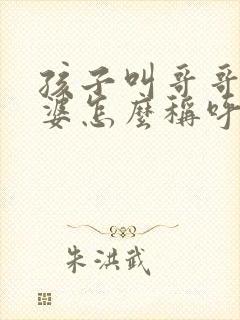 孩子叫哥哥
婆怎麼稱呼
朱洪武